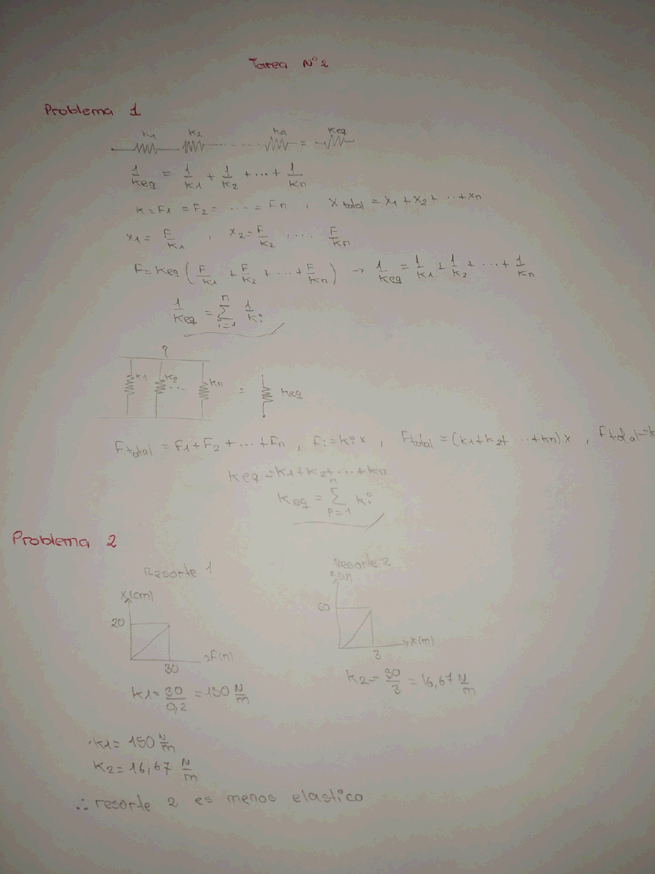 Tarea N°2
Problema 1
k1 k2 ... kn = keq
1/keq = 1/k1 + 1/k2 + ... + 1/kn
k=F1 = F2 = ..... = Fn , x total = x1 + x2 + ... + xn
x1 = F/k1 , x2 = F/k2 .... F/kn
F = keq (F/k1 + F/k2 + ... + F/kn) → 1/keq = 1/k1 + 1/k2 + ... + 1/kn
1/keq = n Σ i=1 1/ki
k1 k2 ... kn = keq
Ftotal = F1 + F2 + ... + Fn , Fi = ki x , Ftotal = (k1 + k2 + ... + kn) x , Ftotal = k
keq = k1 + k2 + ... + kn
keq = n Σ ki
Problema 2
Resorte 1 Resorte 2
x(cm)
20
30 F(n)
x(m)
3
k1 = 30/0,2 = 150 N/m
= 16,67 N/m
k1 = 150 N/m
k2 = 16,67 N/m
∴ resorte 2 es menos elastico